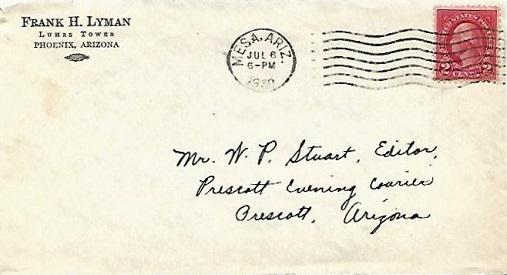 FRANK H. LYMAN
LUHRS TOWER
PHOENIX, ARIZONA
MESA, ARIZ.
JUL 6
6-PM
1930
UNITED STATES POSTAGE
2 CENTS 2
Mr. W. P. Stuart, Editor,
Prescott Evening Courier
Prescott, Arizona